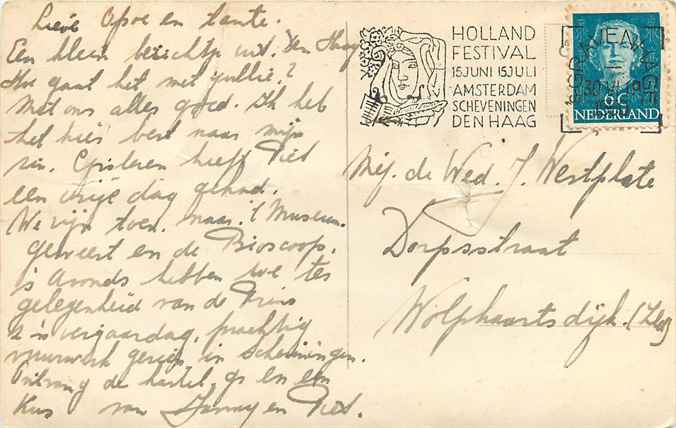 Lieve Opoe en tante.
Een kleen berichtje uit. Den Haag
Hoe gaat het met jullie?
Met ons alles goed. Ik heb
het hier best naar mijn
zin. Gisteren heeft Piet
een vrije dag gehad.
We zijn toen. naar. 't Museum.
geweest en de Bioscoop.
's Avonds hebben we ter
gelegenheid van de Prins
z'n verjaardag, prachtig
vuurwerk gezien in Scheveningen.
Ontvang de hartel. gr en een
Kus van Janny en Piet.
HOLLAND
FESTIVAL
15 JUNI 15 JULI
AMSTERDAM
SCHEVENINGEN
DEN HAAG
6 C
NEDERLAND
Mej. de Wed. J. Westplate
Dorpsstraat
Wolphaartsdijk. (Zld)